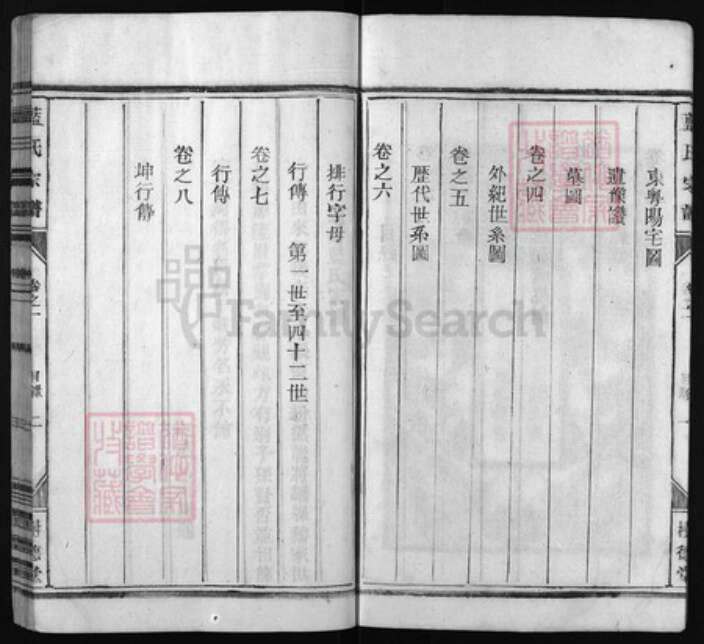 東粵陽宅圖
遺像讚
墓圖
卷之四
外紀世系圖
卷之五
歷代世系圖
卷之六
排行字母
行傳 第一世至四十二世
卷之七
行傳
卷之八
坤行傳
藍氏宗譜
卷之一
目錄
二
樹德堂
FamilySearch